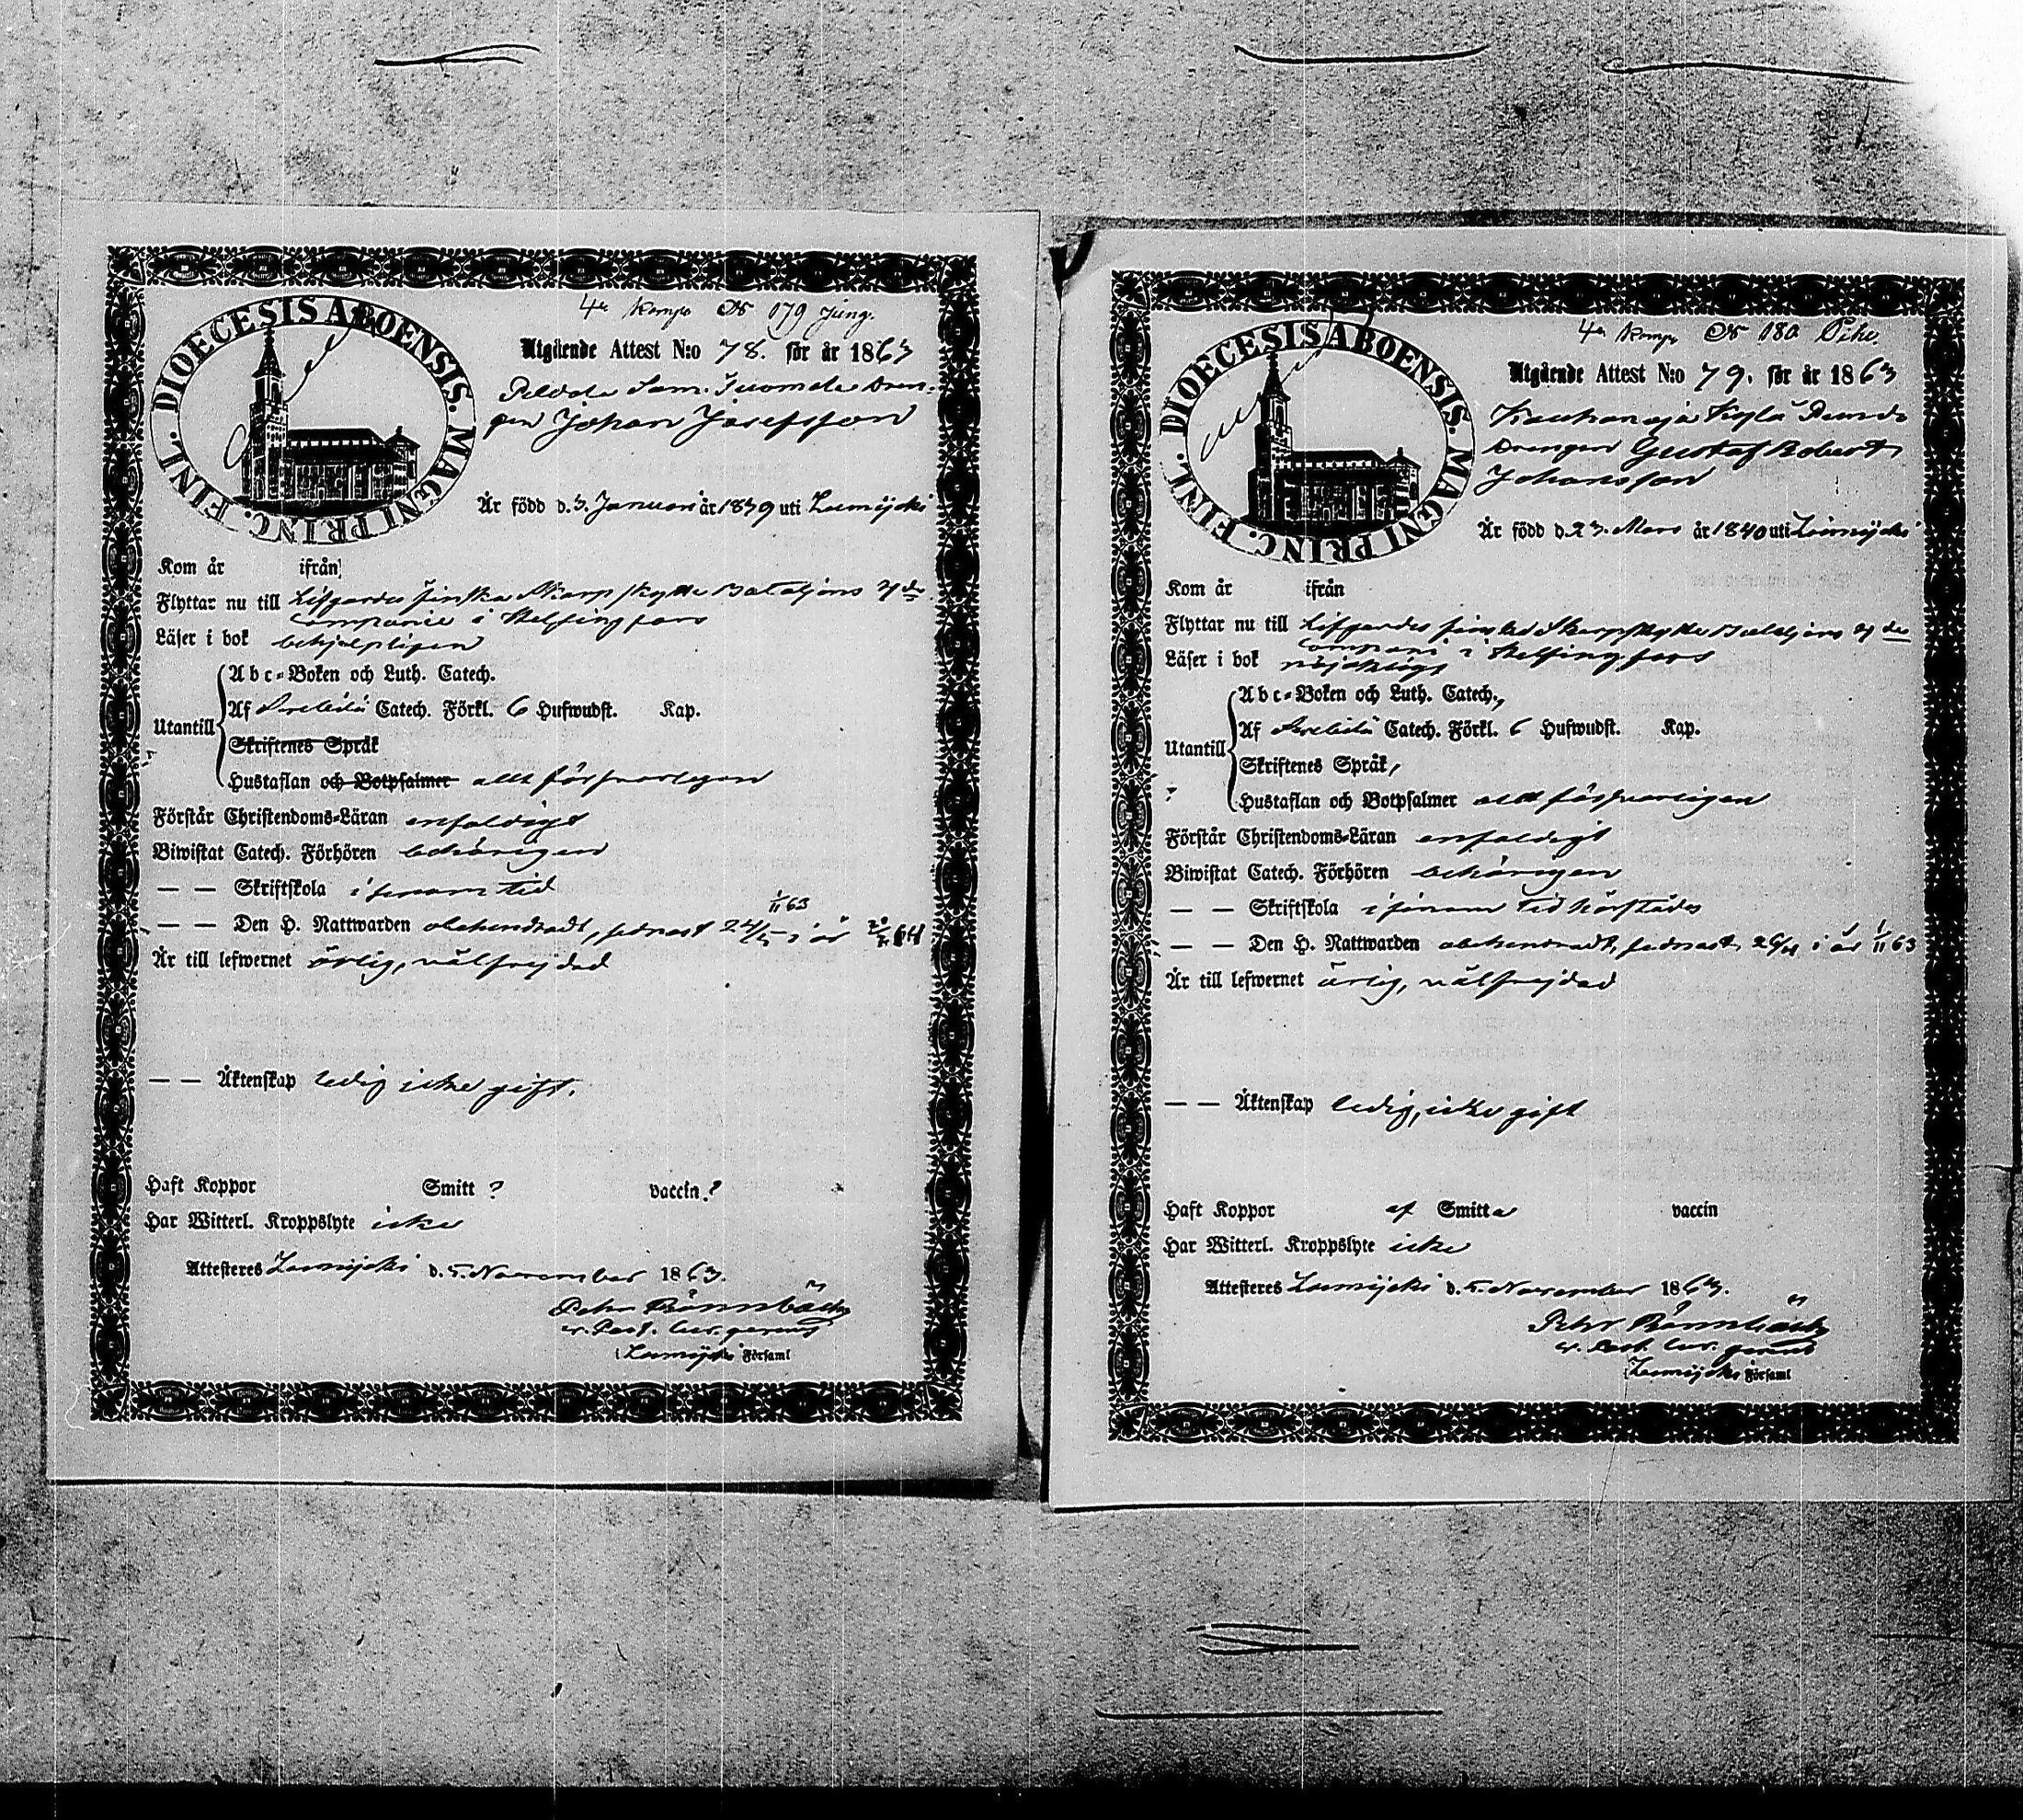 4e Komp № 179 Jung.
DIOECESIS ABOENSIS. MAGNI PRINC. FINL.
Utgående Attest N:o 78. för år 1863
Sam. Tuomola Dren-
gen Johan Josefsson
Är född d. 3. Januari år 1839 uti Loimijoki
Kom år ifrån
Flyttar nu till Lifgardes finska Skarpskytte Bataljons 4de
Companie i Helsingfors
Läser i bok behjelpligen
Utantill
Abc-Boken och Luth. Catech.
Af Svebilii Catech. Förkl. 6 Hufwudst. Kap.
Skriftenes Språk
Hustaflan och Botpsalmer allt försvarligen
Förstår Christendoms-Läran enfaldigt
Biwistat Catech. Förhören behörigen
— — Skriftskola i sinom tid
1/11 63
— — Den H. Nattwarden obehindradt, sednast 24/5 i år
Är till lefwernet ärlig, välfrejdad
— — Äktenskap ledig icke gift.
Haft Koppor Smitt ? vaccin ?
Har Witterl. Kroppslyte icke
Attesteres Loimijoki d. 5. November 1863.
Petr Rönnbäck
v. Past. Cur. gerens
i Loimijoki Församl
4e Komp № 180 Pihl.
DIOECESIS ABOENSIS. MAGNI PRINC. FINL.
Utgående Attest N:o 79. för år 1863
Kauhanoja
Drengen Gustaf Robert
Johansson
Är född d. 23. Mars år 1840 uti Loimijoki
Kom år ifrån
Flyttar nu till Lifgardes finska Skarpskytte Bataljons 4de
Compani i Helsingfors
Läser i bok nöjaktigt
Utantill
Abc-Boken och Luth. Catech.,
Af Svebilii Catech. Förkl. 6 Hufwudst. Kap.
Skriftenes Språk,
Hustaflan och Botpsalmer allt försvarligen
Förstår Christendoms-Läran enfaldigt
Biwistat Catech. Förhören behörigen
— — Skriftskola i sinom tid härstädes
— — Den H. Nattwarden obehindradt, sednast i år 1/11 63
Är till lefwernet ärlig, välfrejdad
— — Äktenskap ledig, icke gift
Haft Koppor af Smitta vaccin
Har Witterl. Kroppslyte icke
Attesteres Loimijoki d. 5. November 1863.
Petr Rönnbäck
v. Past. Cur. gerens
i Loimijoki Församl